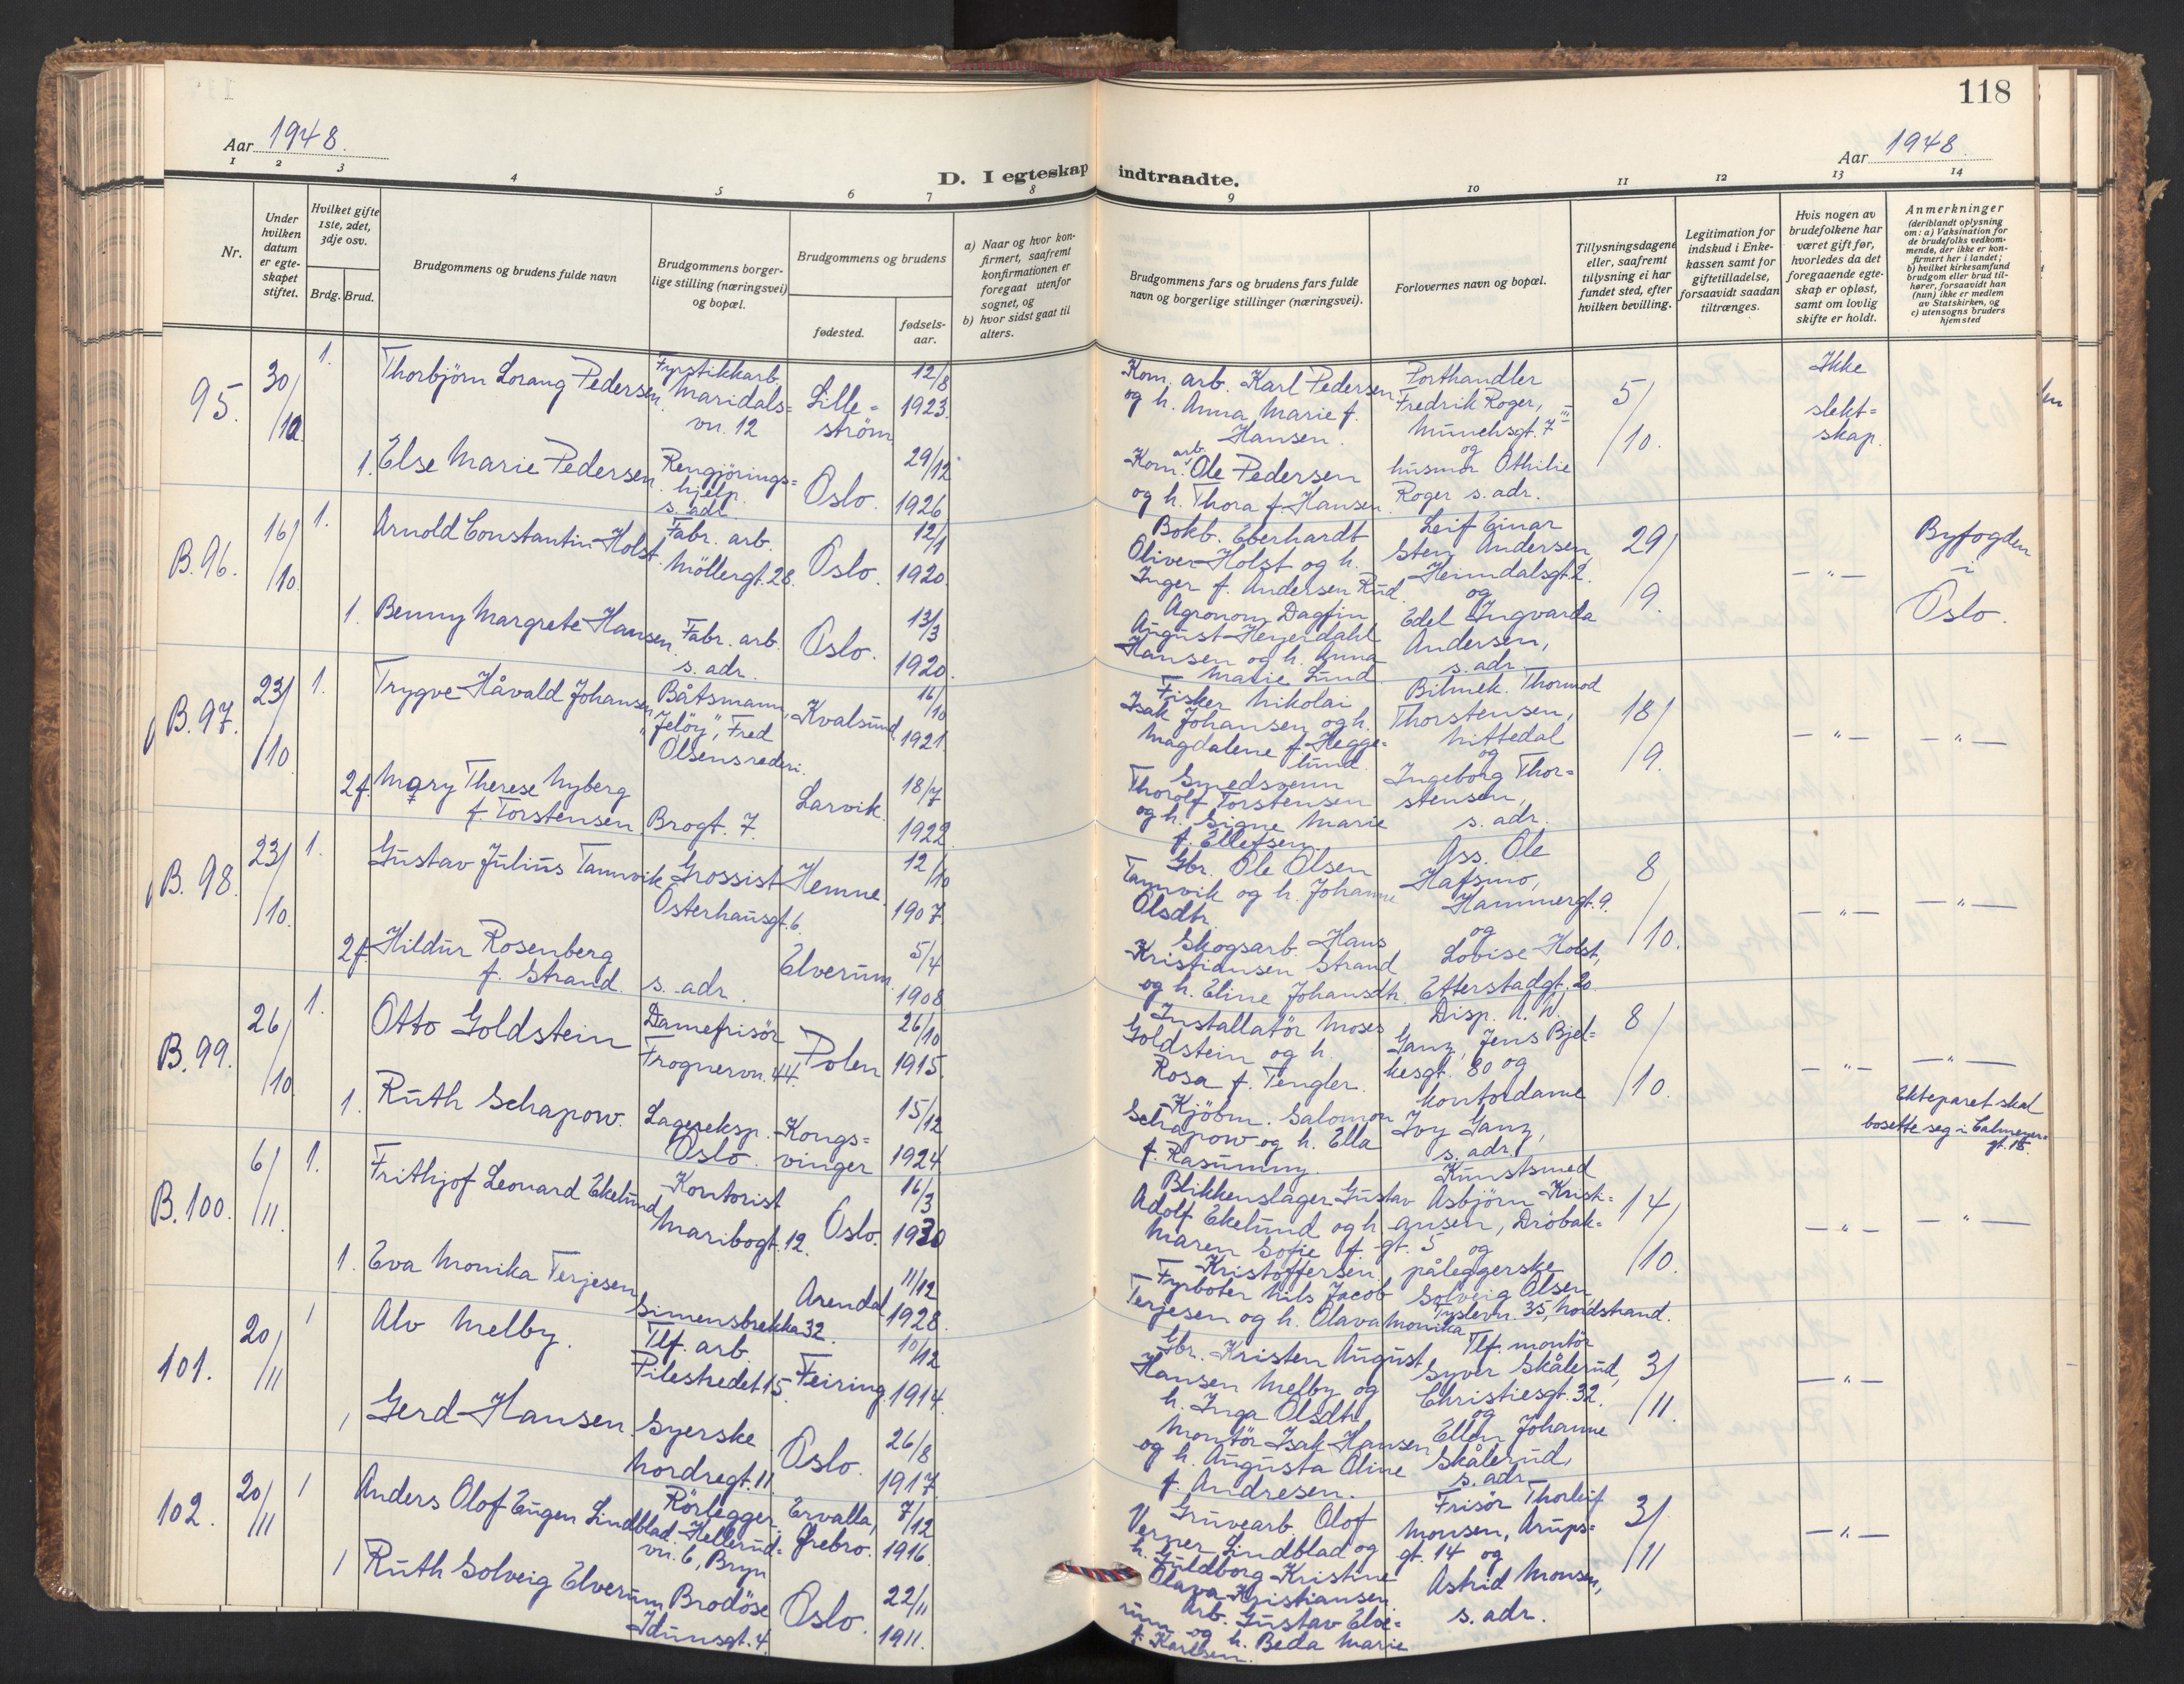 118
Aar 1948.
Aar 1948.
D. I egteskap indtraadte.
1 2 3 4 5 6 7 8 9 10 11 12 13 14
Nr.
Under hvilken datum er egteskapet stiftet.
Hvilket gifte 1ste, 2det, 3dje osv.
Brdg. Brud.
Brudgommens og brudens fulde navn
Brudgommens borgerlige stilling (næringsvei) og bopæl.
Brudgommens og brudens
fødested.
fødselsaar.
a) Naar og hvor konfirmert, saafremt konfirmationen er foregaat utenfor sognet, og
b) hvor sidst gaat til alters.
Brudgommens fars og brudens fars fulde navn og borgerlige stillinger (næringsvei).
Forlovernes navn og bopæl.
Tillysningsdagene eller, saafremt tillysning ei har fundet sted, efter hvilken bevilling.
Legitimation for indskud i Enkekassen samt for giftetilladelse, forsaavidt saadan tiltrænges.
Hvis nogen av brudefolkene har været gift før, hvorledes da det foregaaende egteskap er opløst, samt om lovlig skifte er holdt.
Anmerkninger
(deriblandt oplysning om: a) Vaksination for de brudefolks vedkommende, der ikke er konfirmert her i landet; b) hvilket kirkesamfund brudgom eller brud tilhører, forsaavidt han (hun) ikke er medlem av Statskirken, og c) utensogns bruders hjemsted
95.
30/10
1.
Thorbjörn Lorang Pedersen.
Fyrstikkarb.
Maridals=
vn. 12
Lille=
ström
12/8
1923.
Kom. arb. Karl Pedersen
og h. Anna Marie f.
Hansen.
Porthandler
Fredrik Roger,
Munchsgt. 7 III
og
husmor Othilie
Roger s. adr.
5/10.
Ikke
slekt=
skap.
1.
Else Marie Pedersen.
Rengjörings=
hjelp.
s. adr.
Oslo.
29/12
1926
Kom. arb. Ole Pedersen
og h. Thora f. Hansen.
B.96.
16/10.
1.
Arnold Constantin Holst.
Fabr. arb.
Möllergt. 28.
Oslo.
12/1
1920.
Bokb. Eberhardt
Oliver Holst og h.
Inger f. Andersen Rud.
Leif Einar
Sten Andersen,
Heimdalsgt. 2.
og
Edel Ingvarda
Andersen,
s. adr.
29/9.
— " —
Byfogden
i
Oslo.
1.
Benny Margrete Hansen.
Fabr. arb.
s. adr.
Oslo.
13/3
1920.
Agronom Dagfin
August Heyerdahl
Hansen og h. Anna
Marie Lund.
B.97.
23/10.
1.
Trygve Håvald Johansen
Båtsmann,
"Jelöy", Fred
Olsens rederi.
Kvalsund.
16/10
1921.
Fisker Nikolai
Isak Johansen og h.
Magdalene f. Hegge=
lund.
Bilmek. Thormod
Thorstensen,
Nittedal
og
Ingeborg Thor=
stensen,
s. adr.
18/9.
— " —
— " —
2 f.
Mary Therese Nyberg
f. Torstensen.
Brogt. 7.
Larvik.
18/7
1922.
Smedsvenn
Thorolf Torstensen
og h. Signe Marie
f. Ellefsen.
B. 98.
23/10.
1.
Gustav Julius Tannvik
Grossist
Osterhausgt. 6.
Hemne.
12/10
1907.
Gbr. Ole Olsen
Tannvik og h. Johanne
Olsdtr.
Ass. Ole
Hafsmo,
Hammergt. 9.
og
Lovise Holst,
Etterstadgt. 20.
8/10.
— " —
— " —
2 f.
Hildur Rosenberg
f. Strand.
s. adr.
Elverum.
5/4
1908
Skogsarb. Hans
Kristiansen Strand
og h. Eline Johansdtr.
B.99.
26/10.
1.
Otto Goldstein
Damefrisör
Frognervn. 44.
Polen
26/10
1915.
Installatör Moses
Goldstein og h.
Rosa f. Tengler.
Disp. A. W.
Ganz, Jens Bjel=
kesgt. 80 og
kontordame
Ivy Ganz,
s. adr.
8/10.
— " —
— " —
Ekteparet skal
bosette seg i Calmeyer=
gt. 15.
1.
Ruth Schapow.
Lagereksp.
Oslo.
Kongs=
vinger
15/12
1924
Kjöbm. Salomon
Schapow og h. Ella
f. Rasumny.
B.100.
6/11.
1.
Frithjof Leonard Ekelund
Kontorist
Maribogt. 12.
Oslo.
16/3
1920
Blikkenslager Gustav
Adolf Ekelund og h.
Maren Sofie f.
Kristoffersen.
Kunstsmed
Asbjörn Kristi=
ansen, Dröbak=
gt. 5 og
påleggerske
Solveig Olsen
vn. 35, Nordstrand.
14/10.
— " —
— " —
1.
Eva Monika Terjesen
Simensbrekka 32.
Arendal
11/12
1928.
Fyrböter Nils Jacob
Terjesen og h. Olava Monika
101.
20/11
1
Alv Melby.
Tlf. arb.
Pilestredet 15.
Feiring.
10/12
1914.
Gbr. Kristen August
Hansen Melby og
h. Inga Olsdtr.
Tlf. montör
Syver Skålerud,
Christiesgt. 32.
og
Ellen Johanne
Skålerud,
s. adr.
3/11.
— " —
1
Gerd Hansen.
Syerske
Nordregt. 11.
Oslo.
26/8
1917.
Montör Isak Hansen
og h. Augusta Oline
f. Andresen.
102.
20/11
1
Anders Olof Eugen Lindblad.
Rörlegger.
Hellerud=
vn. 6, Bryn
Ervalla,
Ørebro.
7/12
1916.
Gruvearb. Olof
Verner Lindblad og
h. Guldborg Kristine
Olava Kristiansen.
Frisör Thorleif
Monsen, Arups=
gt. 14 og
Astrid Monsen,
s. adr.
3/11
— " —
1
Ruth Solveig Elverum
Brodöse
Idunsgt. 4.
Oslo.
22/11
1911.
Arb. Gustav Elve=
rum og h. Beda Marie
f. Karlsen.